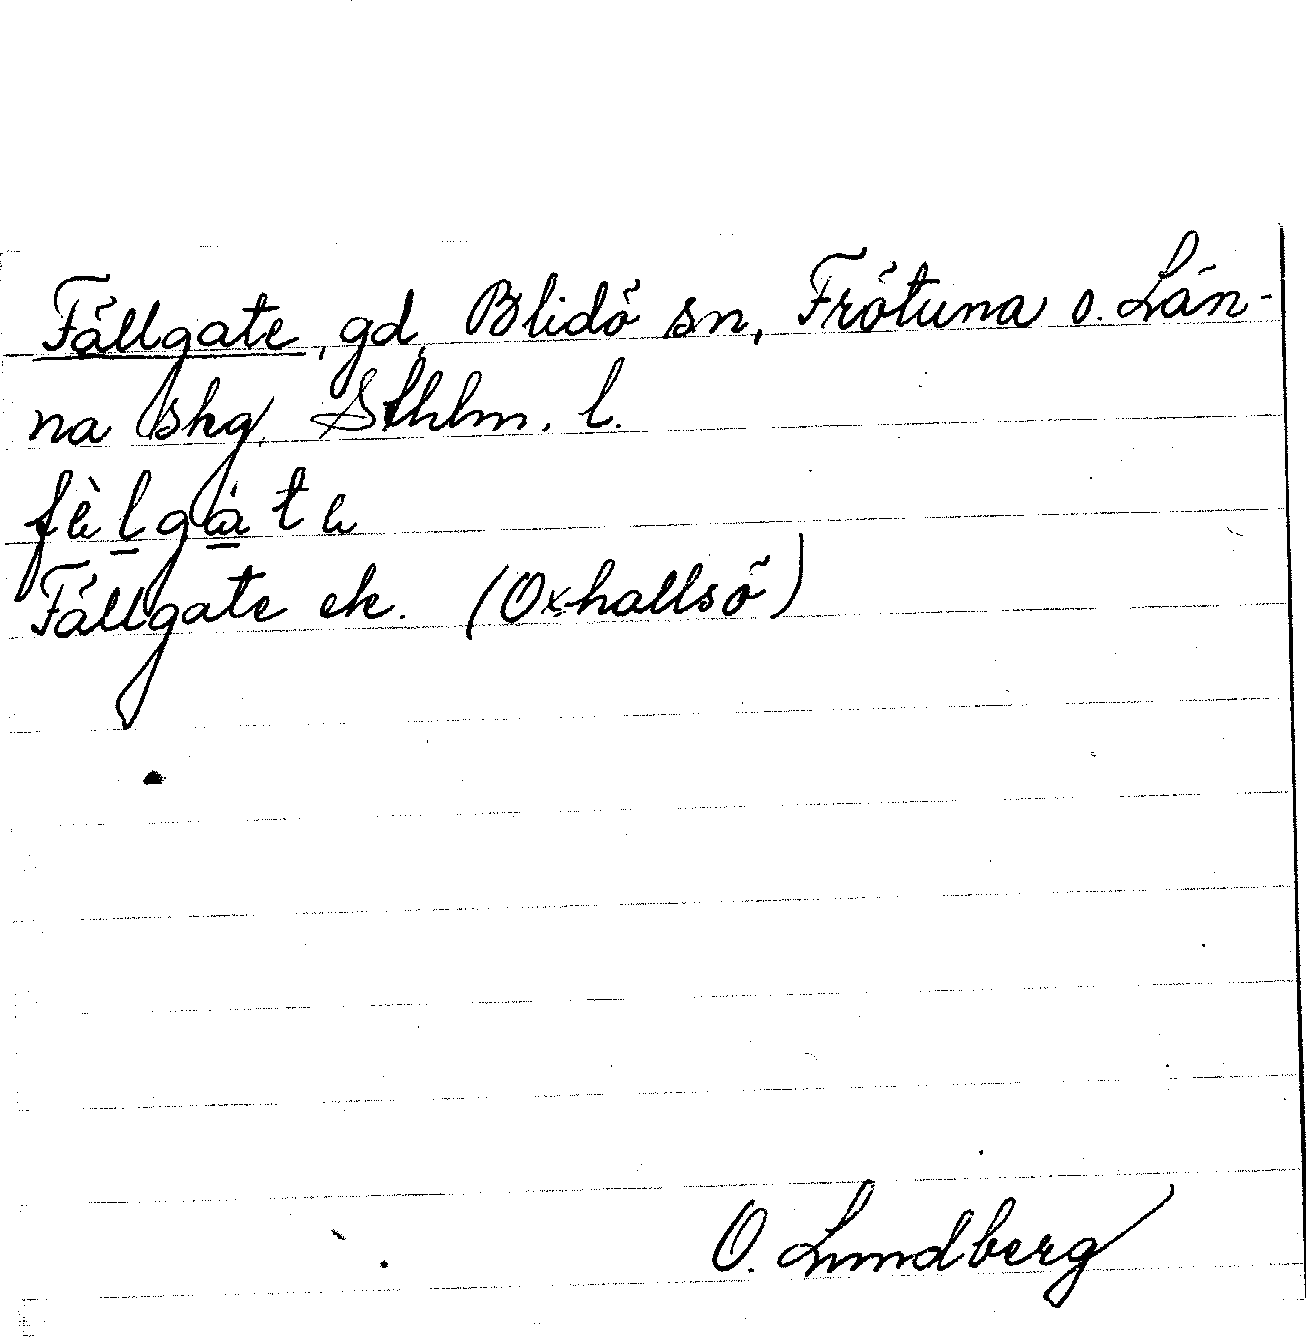 Fällgate, gd, Blidö sn, Frötuna o. Län-
na skg, Sthlm. l.
Fällgate ek. (Oxhallsö)
O. Lundberg